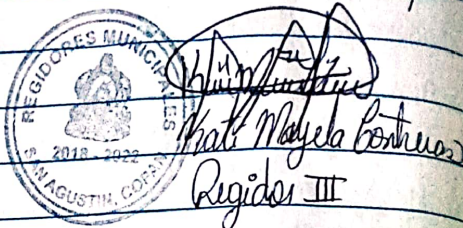 REGIDORES MUNICIPALES
2018 - 2022
SAN AGUSTIN, COPAN
Kati Mayela Contreras
Regidor III